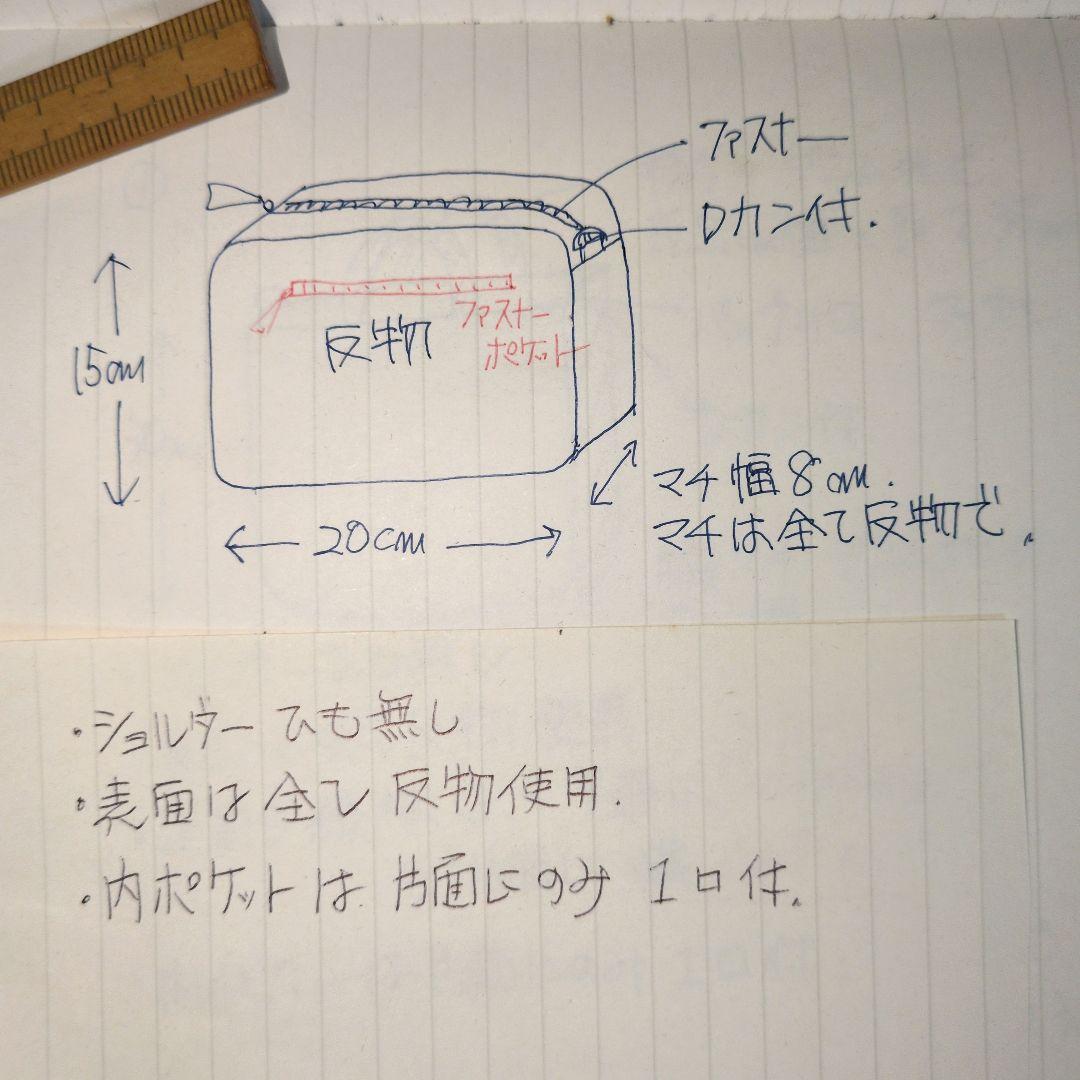 ファスナー
Dカン付.
ファスナー
ポケット
反物
15cm
マチ幅8cm.
マチは全て反物で.
20cm
・ショルダーひも無し
・表面は全て反物使用.
・内ポケットは片面にのみ1口付.